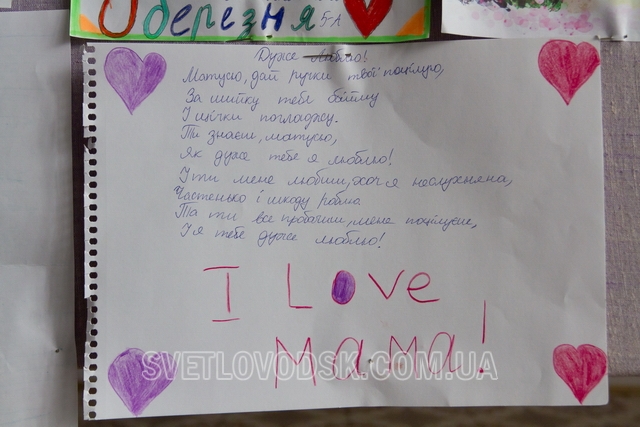 8 березня
5-А
Дуже люблю!
Матусю, дай ручки твої поцілую,
За шийку тебе обійму
І щічки погладжу.
Ти знаєш, матусю,
Як дуже тебе я люблю!
І ти мене любиш, хоч я неслухняна,
Частенько і шкоду роблю
Та ти все пробачиш, мене поцілуєш,
І я тебе дуже люблю!
I Love
Мама!
SVETLOVODSK.COM.UA